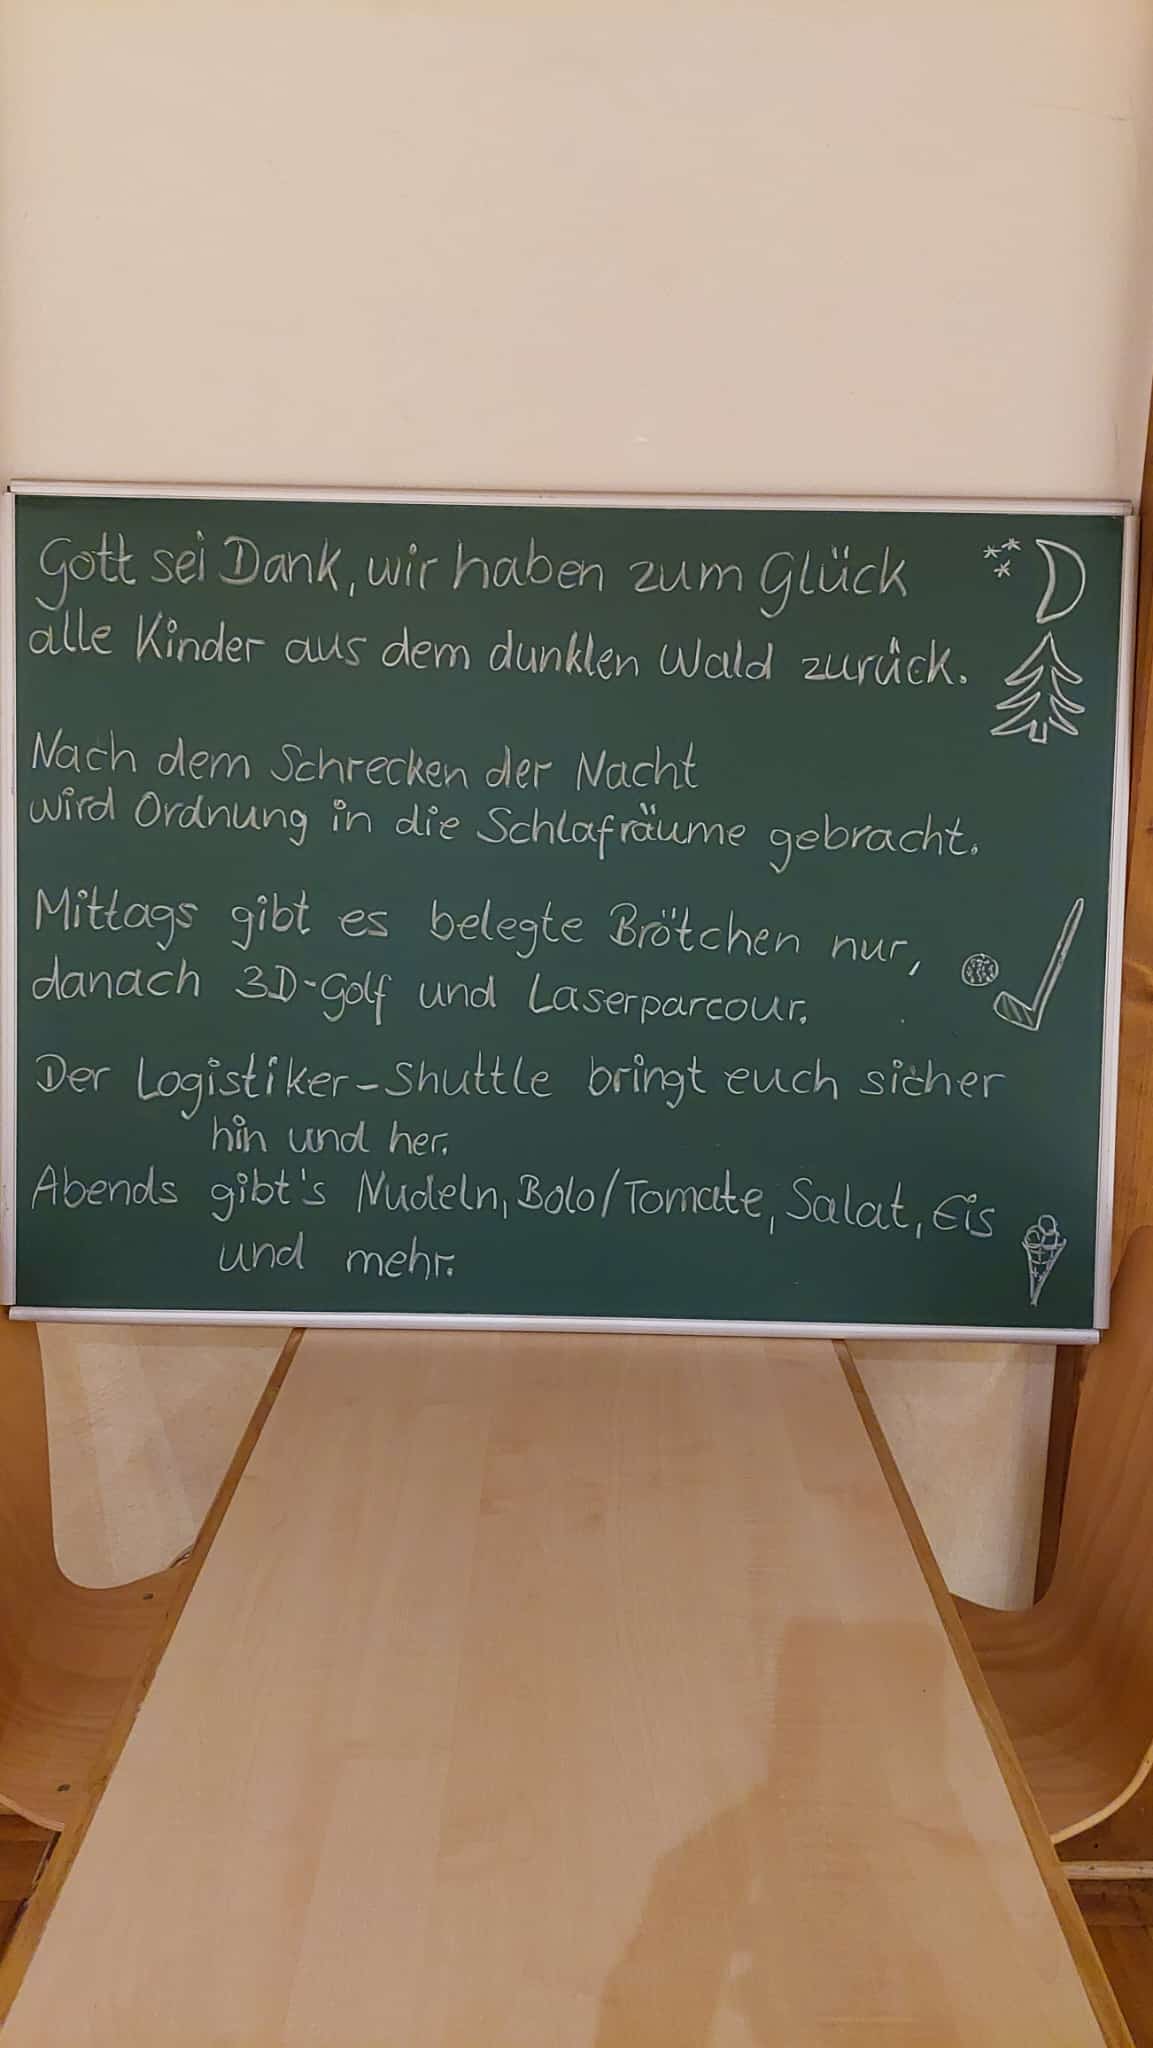 Gott sei Dank, wir haben zum Glück
alle Kinder aus dem dunklen Wald zurück.
Nach dem Schrecken der Nacht
wird Ordnung in die Schlafräume gebracht.
Mittags gibt es belegte Brötchen nur,
danach 3D-Golf und Laserparcour.
Der Logistiker-Shuttle bringt euch sicher
hin und her.
Abends gibt's Nudeln, Bolo/Tomate, Salat, Eis
und mehr.